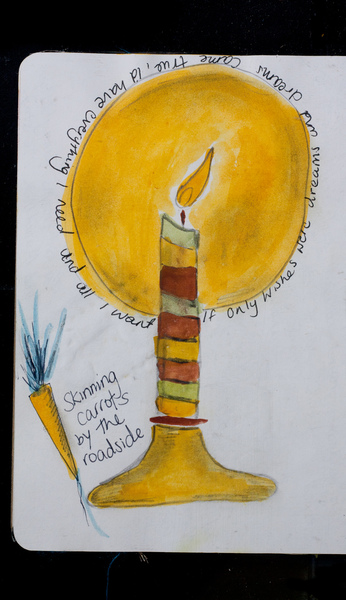 If only wishes were dreams and dreams came true, i'd have everything I need and all I want
Skinning
carrots
by the
roadside